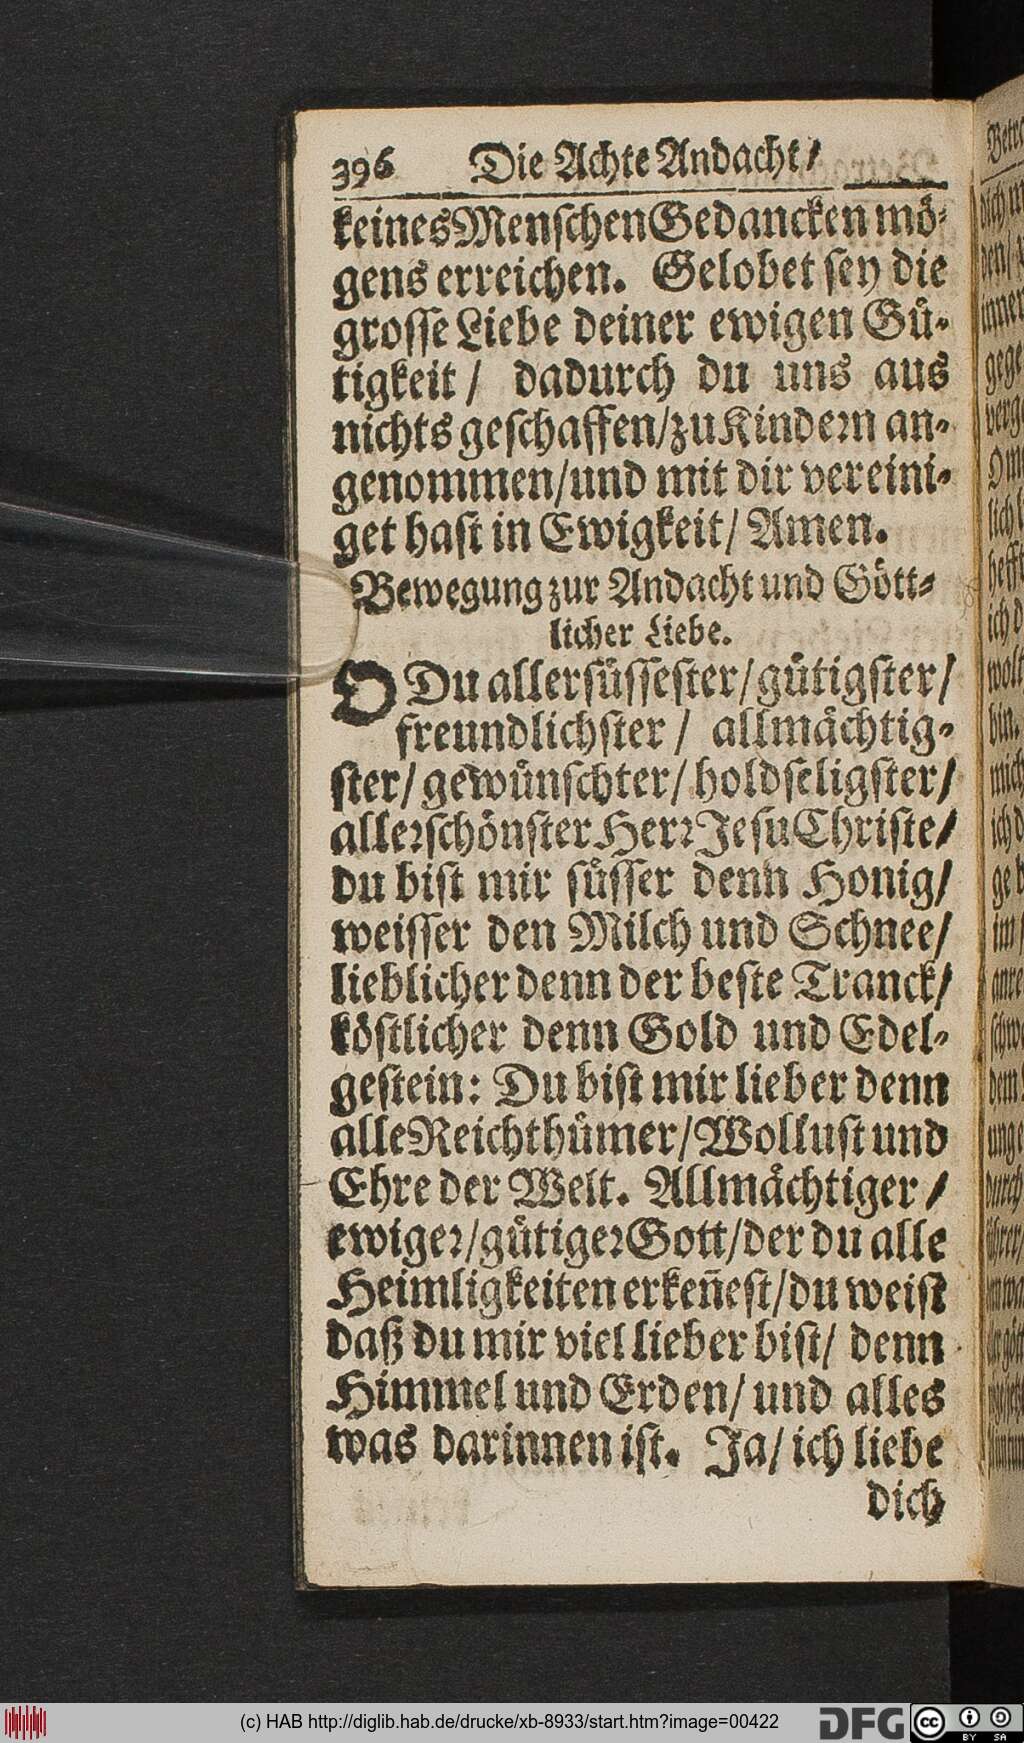 396 Die Achte Andacht/
keines Menschen Gedancken mö-
gens erreichen. Gelobet sey die
grosse Liebe deiner ewigen Gü-
tigkeit / dadurch du uns aus
nichts geschaffen/zu Kindern an-
genommen/und mit dir vereini-
get hast in Ewigkeit/ Amen.
Bewegung zur Andacht und Gött-
licher Liebe.
O Du allersüssester/gütigster/
freundlichster / allmächtig-
ster/gewünschter/holdseligster/
allerschönster Herr Jesu Christe/
du bist mir süsser denn Honig/
weisser den Milch und Schnee/
lieblicher denn der beste Tranck/
köstlicher denn Gold und Edel-
gestein: Du bist mir lieber denn
alle Reichthümer/Wollust und
Ehre der Welt. Allmächtiger /
ewiger/gütiger Gott/der du alle
Heimligkeiten erkeñest/du weist
daß du mir viel lieber bist/ denn
Himmel und Erden/ und alles
was darinnen ist. Ja/ ich liebe
dich
(c) HAB http://diglib.hab.de/drucke/xb-8933/start.htm?image=00422
DFG
cc BY SA